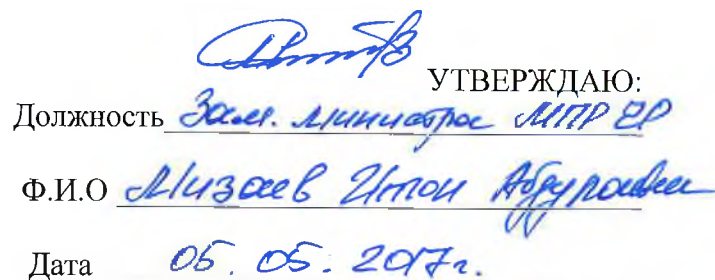 УТВЕРЖДАЮ:
Должность Зам. министра МПР ЧР
Ф.И.О Мизаев
Дата 05.05.2017г.